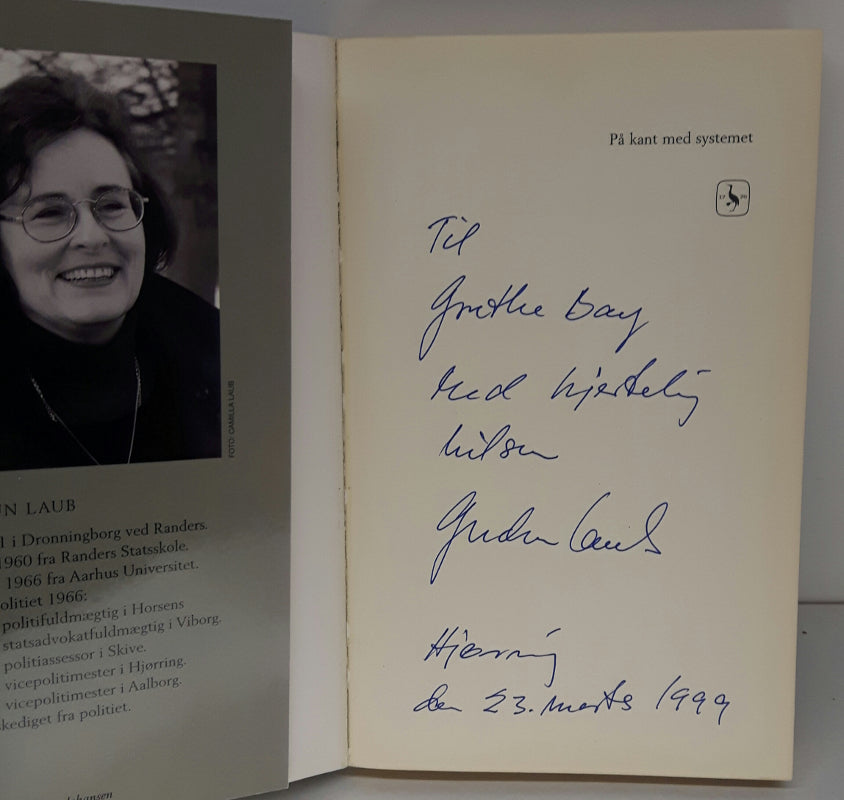 FOTO: CAMILLA LAUB
UN LAUB
1 i Dronningborg ved Randers.
1960 fra Randers Statsskole.
1966 fra Aarhus Universitet.
olitiet 1966:
politifuldmægtig i Horsens
statsadvokatfuldmægtig i Viborg.
politiassessor i Skive.
vicepolitimester i Hjørring.
vicepolitimester i Aalborg.
skediget fra politiet.
Johansen
På kant med systemet
17 70
Til
Grethe Bay
med hjertelig
hilsen
Gudrun Laub
Hjørring
den 23. marts 1999